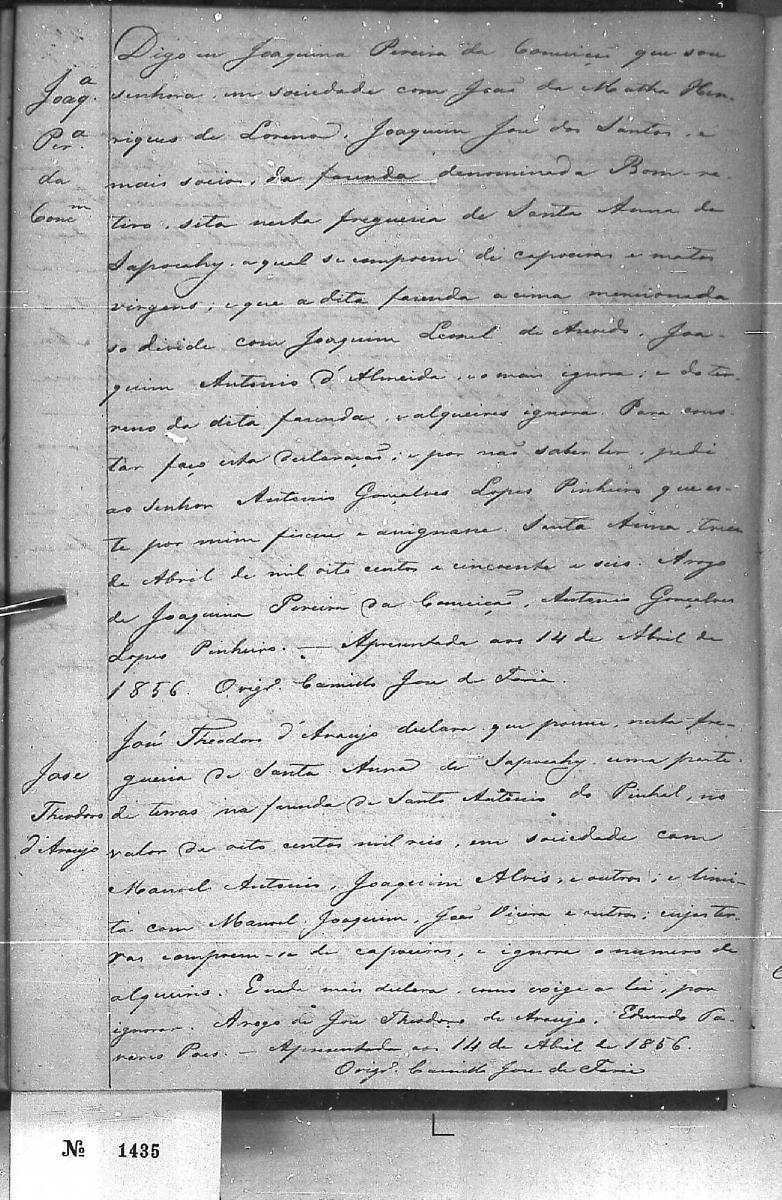 Joaq.a
Per.a
da
Conc.m
Digo eu Joaquina Pereira da Conceicão que sou
senhora, em sociedade com João da Matha Hen-
riques de Lorena, Joaquim Jose dos Santos, e
mais socios, da fazenda denominada Bom-re-
tiro, sita nesta freguezia de Santa Anna de
Sapocahy, a qual se compoem de capoeiras e matos
virgens; e que a dita fazenda acima mencionada
se divide com Joaquim Leonel de Azevedo, Joa-
quim Antonio d'Almeida, e o mais ignora; e do ter-
reno da dita fazenda, e alqueires ignora. Para cons-
tar faço esta declaração; e por não saber ler, pedi
ao Senhor Antonio Gonçalves Lopes Pinheiro que es-
te por mim fizesse e assignasse. Santa Anna, treze
de Abril de mil oito centos e cincoente e seis. Arogo
de Joaquina Pereira da Conceição, Antonio Gonçalves
Lopes Pinheiro. — Apresentada aos 14 de Abril de
1856. Orig.o Camillo Jose de Faria.
Jose
Theodoro
d'Araujo
José Theodoro d'Araujo declara que possue, nesta fre-
guezia de Santa Anna de Sapocahy, uma parte
de terras na fazenda de Santo Antonio do Pinhal, no
valor de oito centos mil reis, em sociedade com
Manoel Antonio, Joaquim Alvis, e outros; e limi-
ta com Manoel Joaquim, João Vieira e outros; cujas ter-
ras compoem-se de capoeiras, e ignora o numero de
alqueires. E nada mais declara, como exige a lei, por
ignorar. Arogo de Jose Theodoro de Araujo, Eduardo Ta-
vares Paes. — Apresentada aos 14 de Abril de 1856.
Orig.o Camillo Jose de Faria
Nº 1435